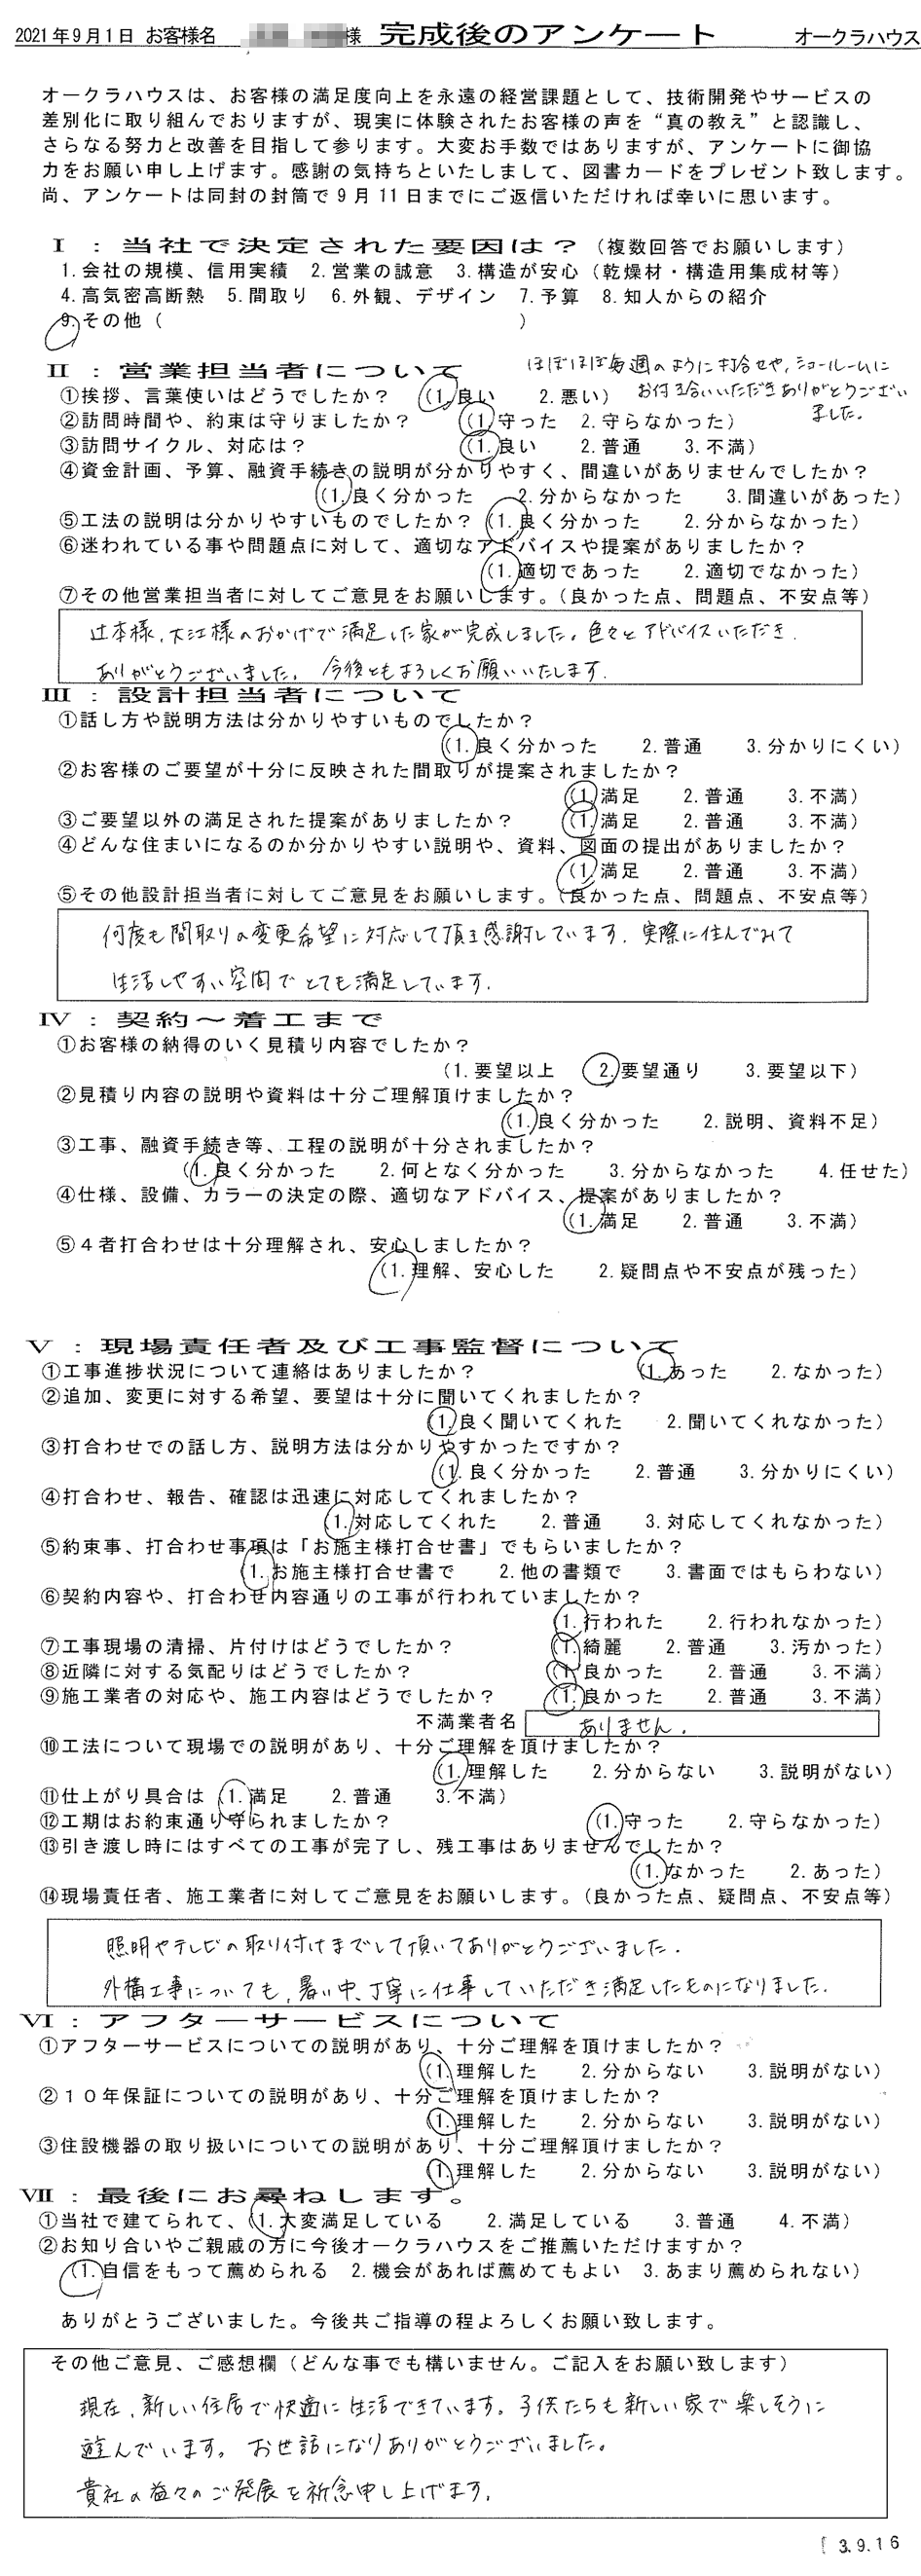 2021年9月1日 お客様名 様 完成後のアンケート オークラハウス
オークラハウスは、お客様の満足度向上を永遠の経営課題として、技術開発やサービスの
差別化に取り組んでおりますが、現実に体験されたお客様の声を“真の教え”と認識し、
さらなる努力と改善を目指して参ります。大変お手数ではありますが、アンケートに御協
力をお願い申し上げます。感謝の気持ちといたしまして、図書カードをプレゼント致します。
尚、アンケートは同封の封筒で9月11日までにご返信いただければ幸いに思います。
Ⅰ：当社で決定された要因は？（複数回答でお願いします）
1.会社の規模、信用実績 2.営業の誠意 3.構造が安心（乾燥材・構造用集成材等）
4.高気密高断熱 5.間取り 6.外観、デザイン 7.予算 8.知人からの紹介
9.その他（ ）
Ⅱ：営業担当者について
ほぼほぼ毎週のように打合せや、ショールームに
お付き合いいただきありがとうござい
ました。
①挨拶、言葉使いはどうでしたか？ （1.良い 2.悪い）
②訪問時間や、約束は守りましたか？ （1.守った 2.守らなかった）
③訪問サイクル、対応は？ （1.良い 2.普通 3.不満）
④資金計画、予算、融資手続きの説明が分かりやすく、間違いがありませんでしたか？
（1.良く分かった 2.分からなかった 3.間違いがあった）
⑤工法の説明は分かりやすいものでしたか？ （1.良く分かった 2.分からなかった）
⑥迷われている事や問題点に対して、適切なアドバイスや提案がありましたか？
（1.適切であった 2.適切でなかった）
⑦その他営業担当者に対してご意見をお願いします。（良かった点、問題点、不安点等）
辻本様、大江様のおかげで満足した家が完成しました。色々とアドバイスいただき
ありがとうございました。今後ともよろしくお願いいたします。
Ⅲ：設計担当者について
①話し方や説明方法は分かりやすいものでしたか？
（1.良く分かった 2.普通 3.分かりにくい）
②お客様のご要望が十分に反映された間取りが提案されましたか？
（1.満足 2.普通 3.不満）
③ご要望以外の満足された提案がありましたか？ （1.満足 2.普通 3.不満）
④どんな住まいになるのか分かりやすい説明や、資料、図面の提出がありましたか？
（1.満足 2.普通 3.不満）
⑤その他設計担当者に対してご意見をお願いします。（良かった点、問題点、不安点等）
何度も間取りの変更希望に対応して頂き感謝しています。実際に住んでみて
生活しやすい空間でとても満足しています。
Ⅳ：契約～着工まで
①お客様の納得のいく見積り内容でしたか？
（1.要望以上 2.要望通り 3.要望以下）
②見積り内容の説明や資料は十分ご理解頂けましたか？
（1.良く分かった 2.説明、資料不足）
③工事、融資手続き等、工程の説明が十分されましたか？
（1.良く分かった 2.何となく分かった 3.分からなかった 4.任せた）
④仕様、設備、カラーの決定の際、適切なアドバイス、提案がありましたか？
（1.満足 2.普通 3.不満）
⑤４者打合わせは十分理解され、安心しましたか？
（1.理解、安心した 2.疑問点や不安点が残った）
Ⅴ：現場責任者及び工事監督について
①工事進捗状況について連絡はありましたか？ （1.あった 2.なかった）
②追加、変更に対する希望、要望は十分に聞いてくれましたか？
（1.良く聞いてくれた 2.聞いてくれなかった）
③打合わせでの話し方、説明方法は分かりやすかったですか？
（1.良く分かった 2.普通 3.分かりにくい）
④打合わせ、報告、確認は迅速に対応してくれましたか？
1.対応してくれた 2.普通 3.対応してくれなかった）
⑤約束事、打合わせ事項は「お施主様打合せ書」でもらいましたか？
1.お施主様打合せ書で 2.他の書類で 3.書面ではもらわない）
⑥契約内容や、打合わせ内容通りの工事が行われていましたか？
（1.行われた 2.行われなかった）
⑦工事現場の清掃、片付けはどうでしたか？ （1.綺麗 2.普通 3.汚かった）
⑧近隣に対する気配りはどうでしたか？ （1.良かった 2.普通 3.不満）
⑨施工業者の対応や、施工内容はどうでしたか？ （1.良かった 2.普通 3.不満）
不満業者名 ありません.
⑩工法について現場での説明があり、十分ご理解を頂けましたか？
（1.理解した 2.分からない 3.説明がない）
⑪仕上がり具合は （1.満足 2.普通 3.不満）
⑫工期はお約束通り守られましたか？ （1.守った 2.守らなかった）
⑬引き渡し時にはすべての工事が完了し、残工事はありませんでしたか？
（1.なかった 2.あった）
⑭現場責任者、施工業者に対してご意見をお願いします。（良かった点、疑問点、不安点等）
照明やテレビの取り付けまでして頂いてありがとうございました.
外構工事についても、暑い中、丁寧に仕事していただき満足したものになりました.
Ⅵ：アフターサービスについて
①アフターサービスについての説明があり、十分ご理解を頂けましたか？
（1.理解した 2.分からない 3.説明がない）
②１０年保証についての説明があり、十分ご理解を頂けましたか？
（1.理解した 2.分からない 3.説明がない）
③住設機器の取り扱いについての説明があり、十分ご理解頂けましたか？
（1.理解した 2.分からない 3.説明がない）
Ⅶ：最後にお尋ねします。
①当社で建てられて、（1.大変満足している 2.満足している 3.普通 4.不満）
②お知り合いやご親戚の方に今後オークラハウスをご推薦いただけますか？
（1.自信をもって薦められる 2.機会があれば薦めてもよい 3.あまり薦められない）
ありがとうございました。今後共ご指導の程よろしくお願い致します。
その他ご意見、ご感想欄（どんな事でも構いません。ご記入をお願い致します）
現在、新しい住居で快適に生活できています。子供たちも新しい家で楽しそうに
遊んでいます。お世話になりありがとうございました。
貴社の益々のご発展を祈念申し上げます.
3.9.16